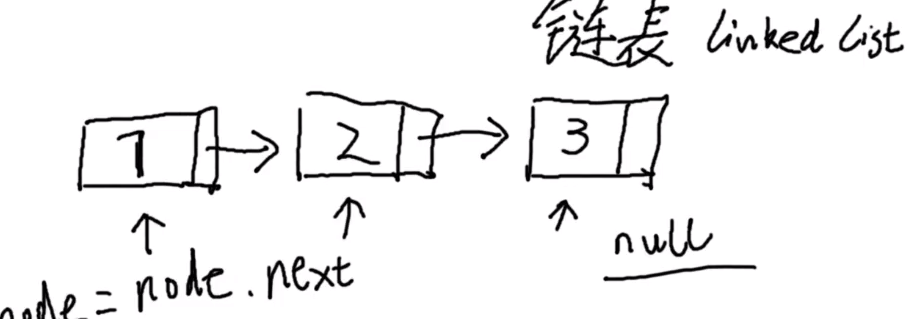 链表 linked list
1 2 3
null
node = node.next